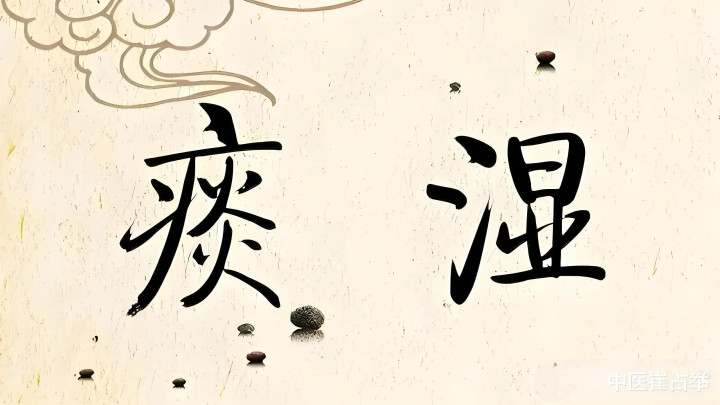 痰湿
中医崔占举